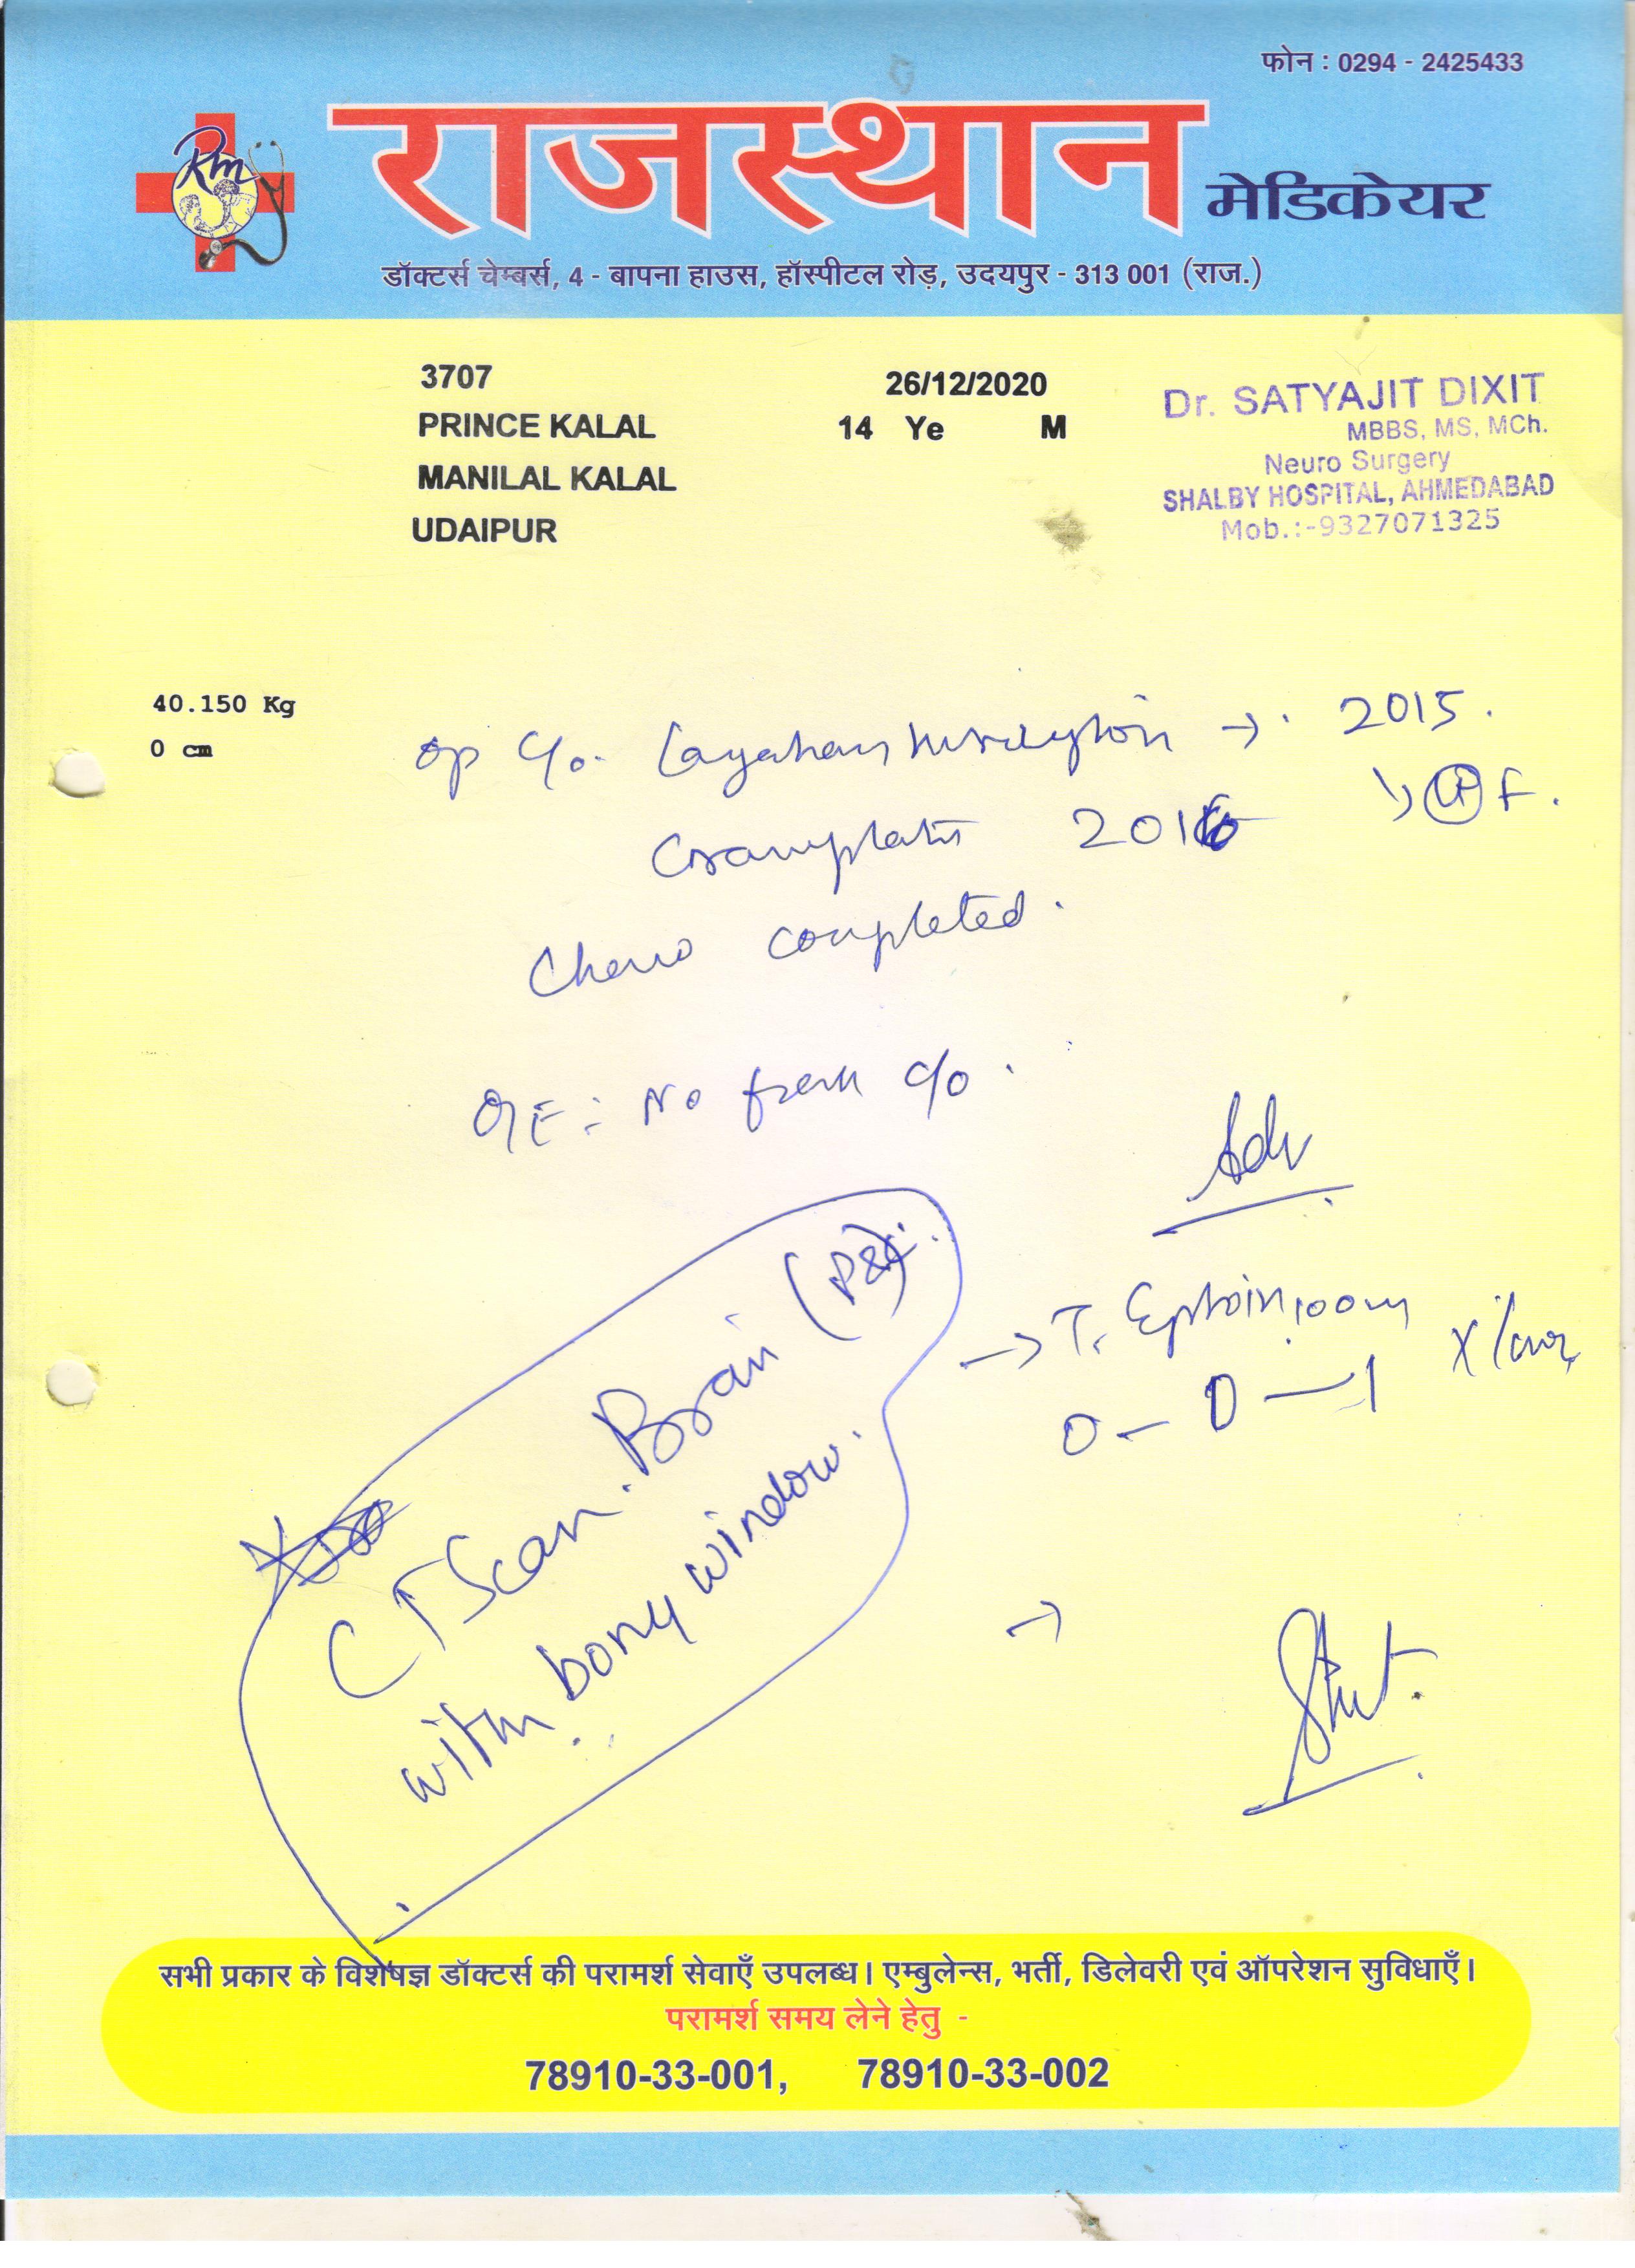 फोन : 0294 - 2425433
Rm
राजस्थान मेडिकेयर
डॉक्टर्स चेम्बर्स, 4 - बापना हाउस, हॉस्पीटल रोड़, उदयपुर - 313 001 (राज.)
3707 26/12/2020
PRINCE KALAL 14 Ye M
MANILAL KALAL
UDAIPUR
Dr. SATYAJIT DIXIT
MBBS, MS, MCh.
Neuro Surgery
SHALBY HOSPITAL, AHMEDABAD
Mob.:-9327071325
40.150 Kg
0 cm
op c/o. → 2015.
2016 F.
completed.
O/E : No fresh c/o.
Adv
→ T. Eptoin 100
0 - 0 - 1
CT Scan. Brain
with bony window.
→
सभी प्रकार के विशेषज्ञ डॉक्टर्स की परामर्श सेवाएँ उपलब्ध। एम्बुलेन्स, भर्ती, डिलेवरी एवं ऑपरेशन सुविधाएँ।
परामर्श समय लेने हेतु -
78910-33-001, 78910-33-002